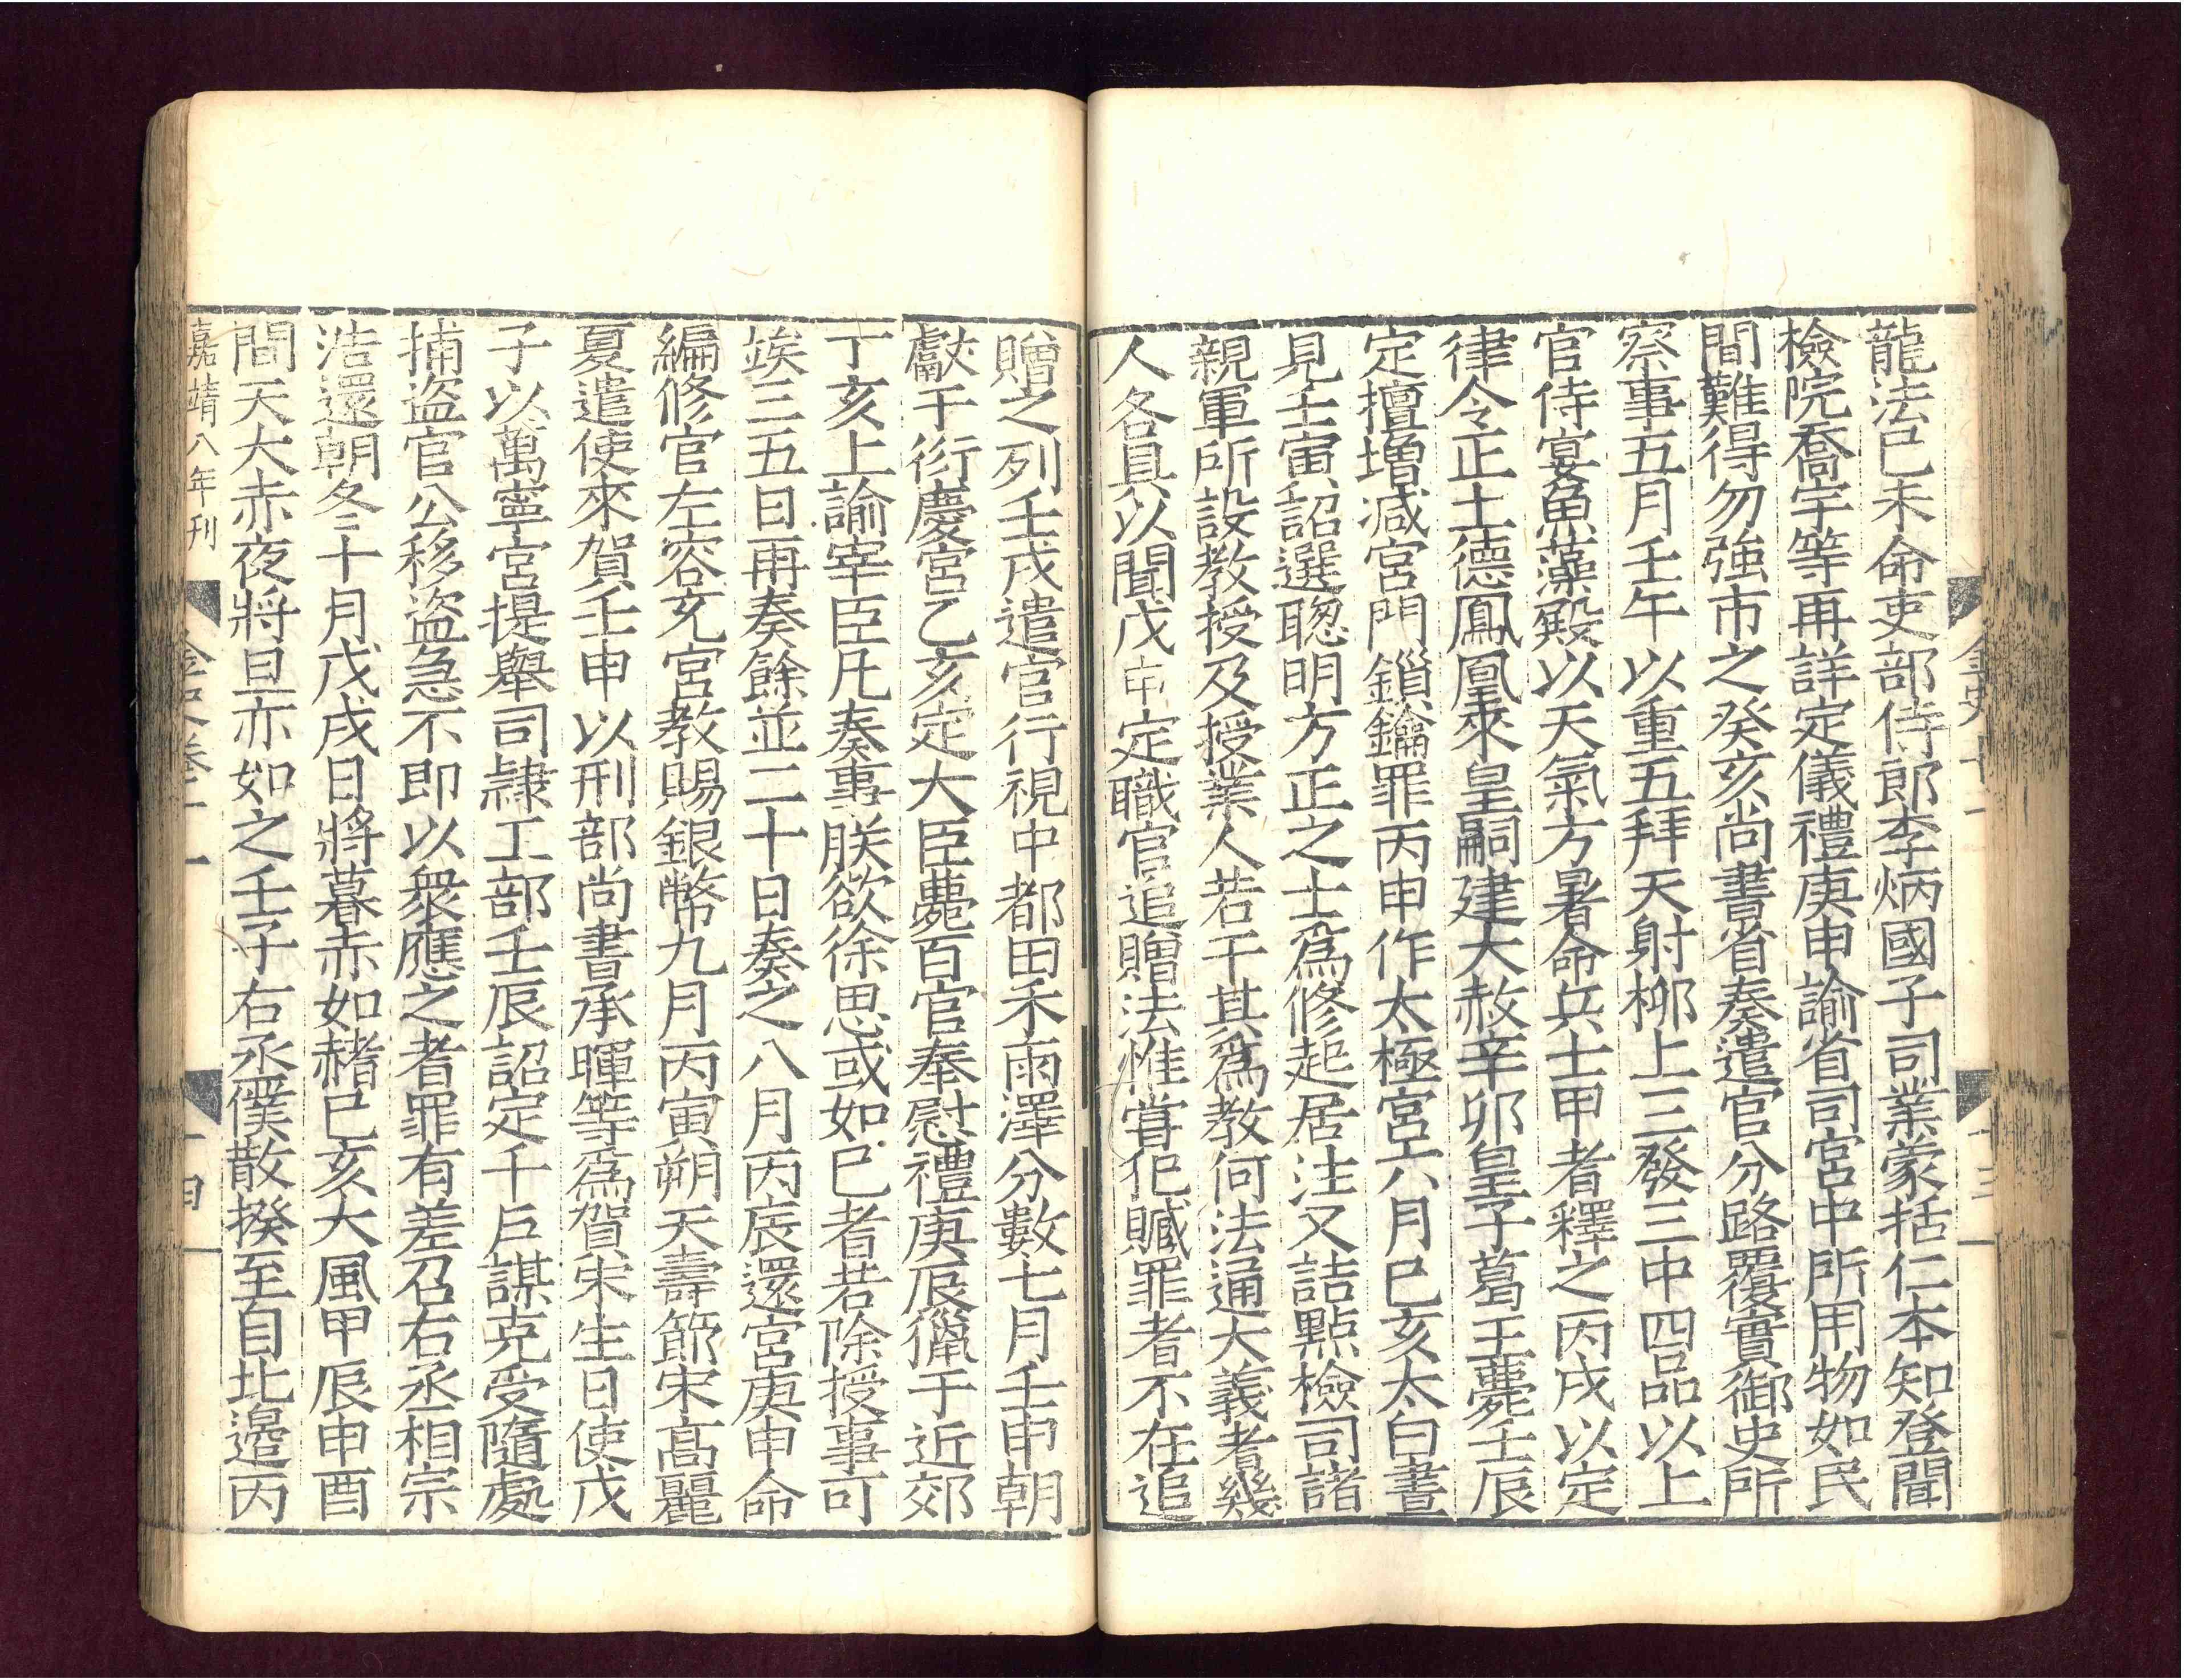 龍法巳未命吏部侍郎李炳國子司業蒙括仁本知登聞
檢院喬宇等再詳定儀禮庚申諭省司宮中所用物如民
間難得勿強市之癸亥尚書省奏遣官分路覆實御史所
察事五月壬午以重五拜天射柳上三發三中四品以上
官侍宴魚藻殿以天氣方暑命兵士甲者釋之丙戌以定
律令正土德鳳凰來皇嗣建大赦辛卯皇子葛王薨壬辰
定擅增減宮門鎖鑰罪丙申作太極宮六月巳亥太白晝
見壬寅詔選聰明方正之士爲修起居注又詰點檢司諸
親軍所設教授及授業人若干其爲教何法通大義者幾
人各具以聞戊申定職官追贈法惟甞犯贓罪者不在追
贈之列壬戌遣官行視中都田禾雨澤分數七月壬申朝
獻于衍慶宮乙亥定大臣薨百官奉慰禮庚辰獵于近郊
丁亥上諭宰臣凡奏事朕欲徐思或如巳者若除授事可
竢三五日再奏餘並二十日奏之八月丙辰還宮庚申命
編修官左容充宮教賜銀幣九月丙寅朔天壽節宋髙麗
夏遣使來賀壬申以刑部尚書承暉等爲賀宋生日使戊
子以萬寧宮提舉司隷工部壬辰詔定千戶謀克受隨處
捕盜官公移盜急不即以衆應之者罪有差召右丞相宗
浩還朝冬十月戊戌日將暮赤如赭巳亥大風甲辰申酉
間天大赤夜將旦亦如之壬子右丞僕散揆至自北邊丙
嘉靖八年刊
金史卷十一
十四